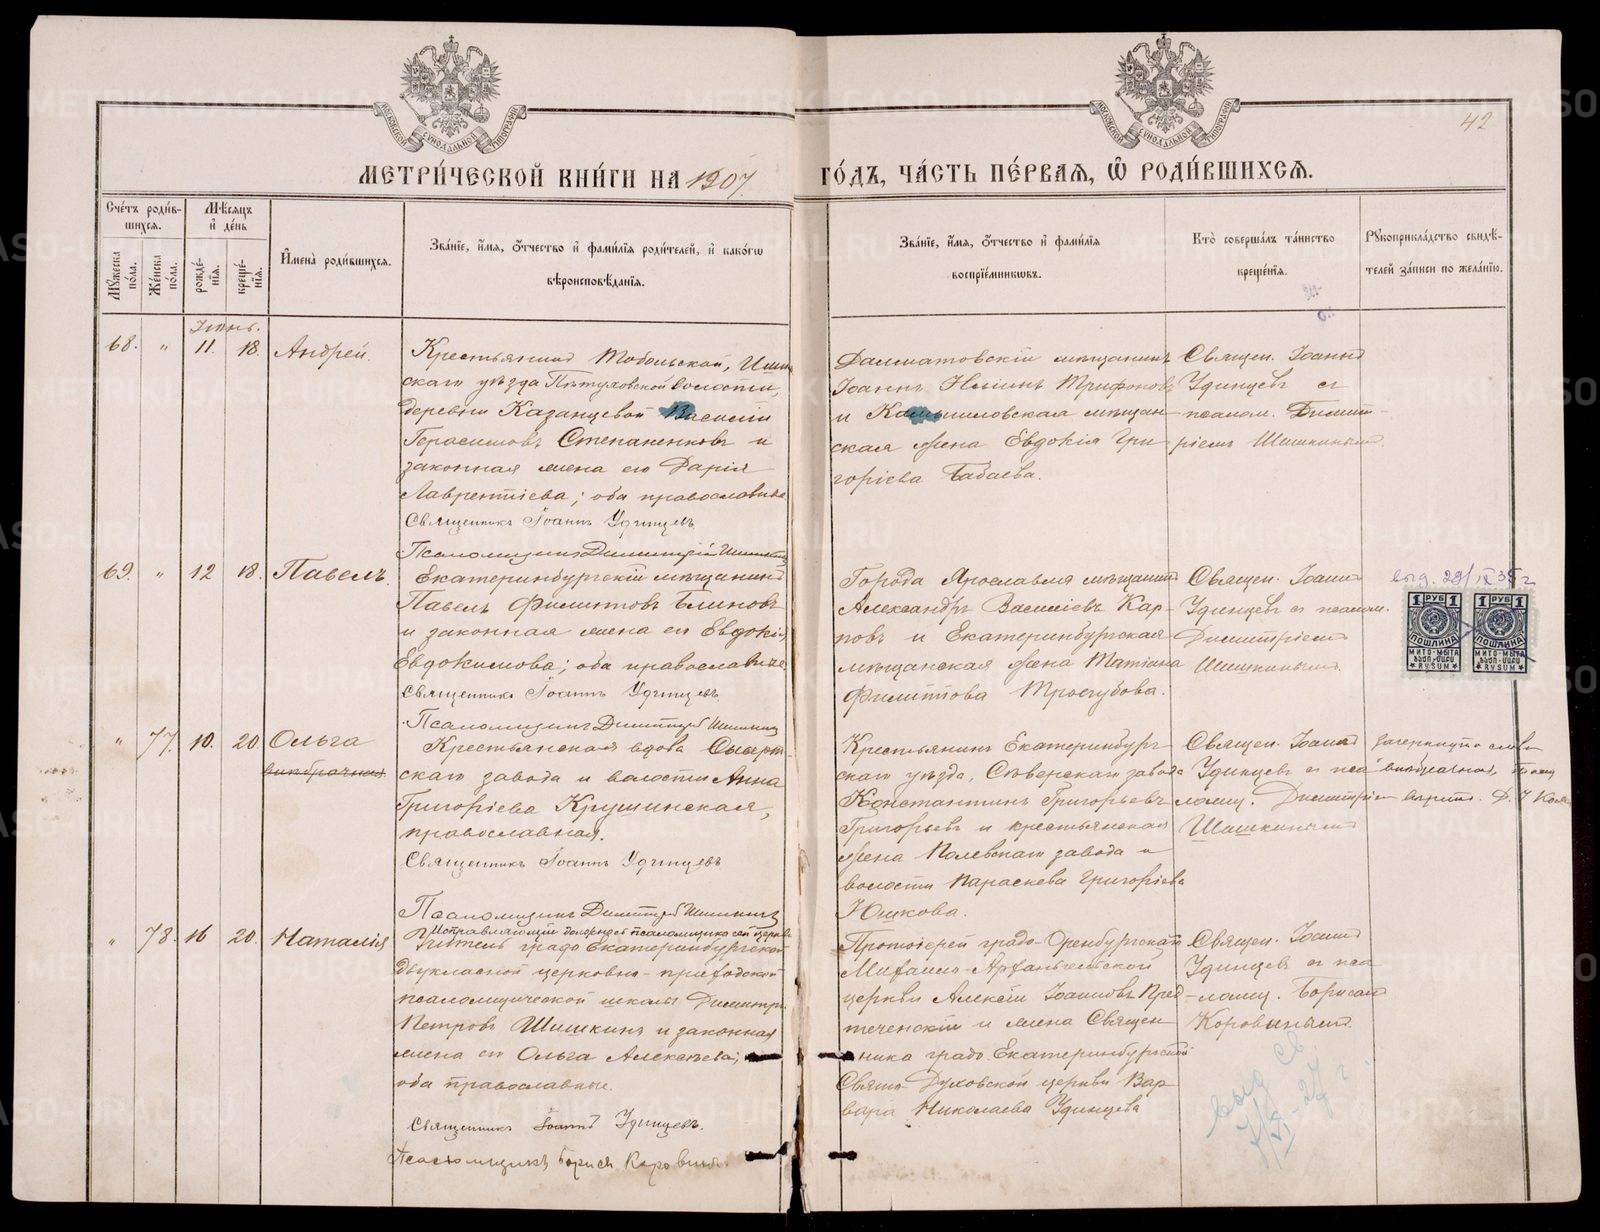 42
МЕТРИ́ЧЕСКОЙ КНИ́ГИ НА 1907 ГО́ДЪ, ЧА́СТЬ ПЕ́РВАЯ, Ѡ РОДИ́ВШИХСЯ.
Сче́тъ роди́в-
шихся.
Му́жеска по́ла.
Же́нска по́ла.
Мѣ́сяцъ
и҆ де́нь
рожде́-
нїя.
креще́-
нїя.
И҆мена̀ роди́вшихся.
Зва́нїе, и҆́мя, ѻ҆́тчество и҆ фами́лїя роди́телей, и҆ како́гѡ
вѣроисповѣ́данїя.
Зва́нїе, и҆́мя, ѻ҆́тчество и҆ фами́лїя
воспрїе́мникѡвъ.
Кто̀ соверша́лъ та́инство
креще́нїя.
Рꙋкоприкла́дство свидѣ́-
телей за́писи по жела́нїю.
Іюнь.
68. " 11. 18. Андрей.
Крестьянинъ Тобольской, Ишим
скаго уѣзда Пѣтуховской волости,
деревни Казанцевой Василій
Герасимовъ Степаненковъ и
законная жена его Дарія
Лаврентіева; оба православные
Священникъ Іоаннъ Удинцевъ
Псаломщикъ Димитрій Шишкинъ
Далматовскій мѣщанинъ
Іоаннъ Ильинъ Трифоновъ
и Камышловская мѣщан-
ская жена Евдокія Гри-
горіева Бабаева.
Священ. Іоаннъ
Удинцевъ съ
псалом. Димит-
ріемъ Шишкинымъ.
69. " 12 18. Павелъ.
Екатеринбургскій мѣщанинъ
Павелъ Филипповъ Блиновъ
и законная жена его Евдокія
Евдокимова; оба православные
Священникъ Іоаннъ Удинцевъ.
Псаломщикъ Димитрій Шишкинъ
Города Ярославля мѣщанинъ
Александръ Василіевъ Кар-
повъ и Екатеринбургская
мѣщанская жена Татіана
Филиппова Трослубова.
Священ. Іоаннъ
Удинцевъ съ псалом.
Димитріемъ
Шишкинымъ.
выд. 29/IX 35 г
1 РУБ 1
ПОШЛИНА
МИТО-МЫТА
RYSUM
1 РУБ 1
ПОШЛИНА
МИТО-МЫТА
RYSUM
" 77. 10. 20 Ольга
внѣбрачная
Крестьянская вдова Сысерт-
скаго завода и волости Анна
Григоріева Крушинская,
православная.
Священникъ Іоаннъ Удинцевъ
Псаломщикъ Димитрій Шишкинъ
Крестьянинъ Екатеринбург-
скаго уѣзда, Сѣверскаго завода
Константинъ Григорьевъ
Григорьевъ и крестьянская
жена Полевскаго завода и
волости Параскева Григоріева
Юшкова.
Священ. Іоаннъ
Удинцевъ съ пса-
ломщ. Димитріемъ
Шишкинымъ
зачеркнуто слово
"внѣбрачная"
" 78. 16 20. Наталія
Исправляющій должность псаломщика сей церкви
Учитель градо Екатеринбургской
двуклассной церковно-приходской
псаломщической школы Димитрій
Петровъ Шишкинъ и законная
жена его Ольга Алексѣева;
оба православные.
Священникъ Іоаннъ Удинцевъ.
Псаломщикъ Борисъ Коровинъ.
Протоіерей градо-Оренбургской
Михаило-Архангельской
церкви Алексій Іоанновъ Пред-
теченскій и жена Священ-
ника градо-Екатеринбургской
Свято-Духовской церкви Вар-
вара Николаева Удинцева
Священ. Іоаннъ
Удинцевъ съ пса-
ломщ. Борисомъ
Коровинымъ.
выд св.